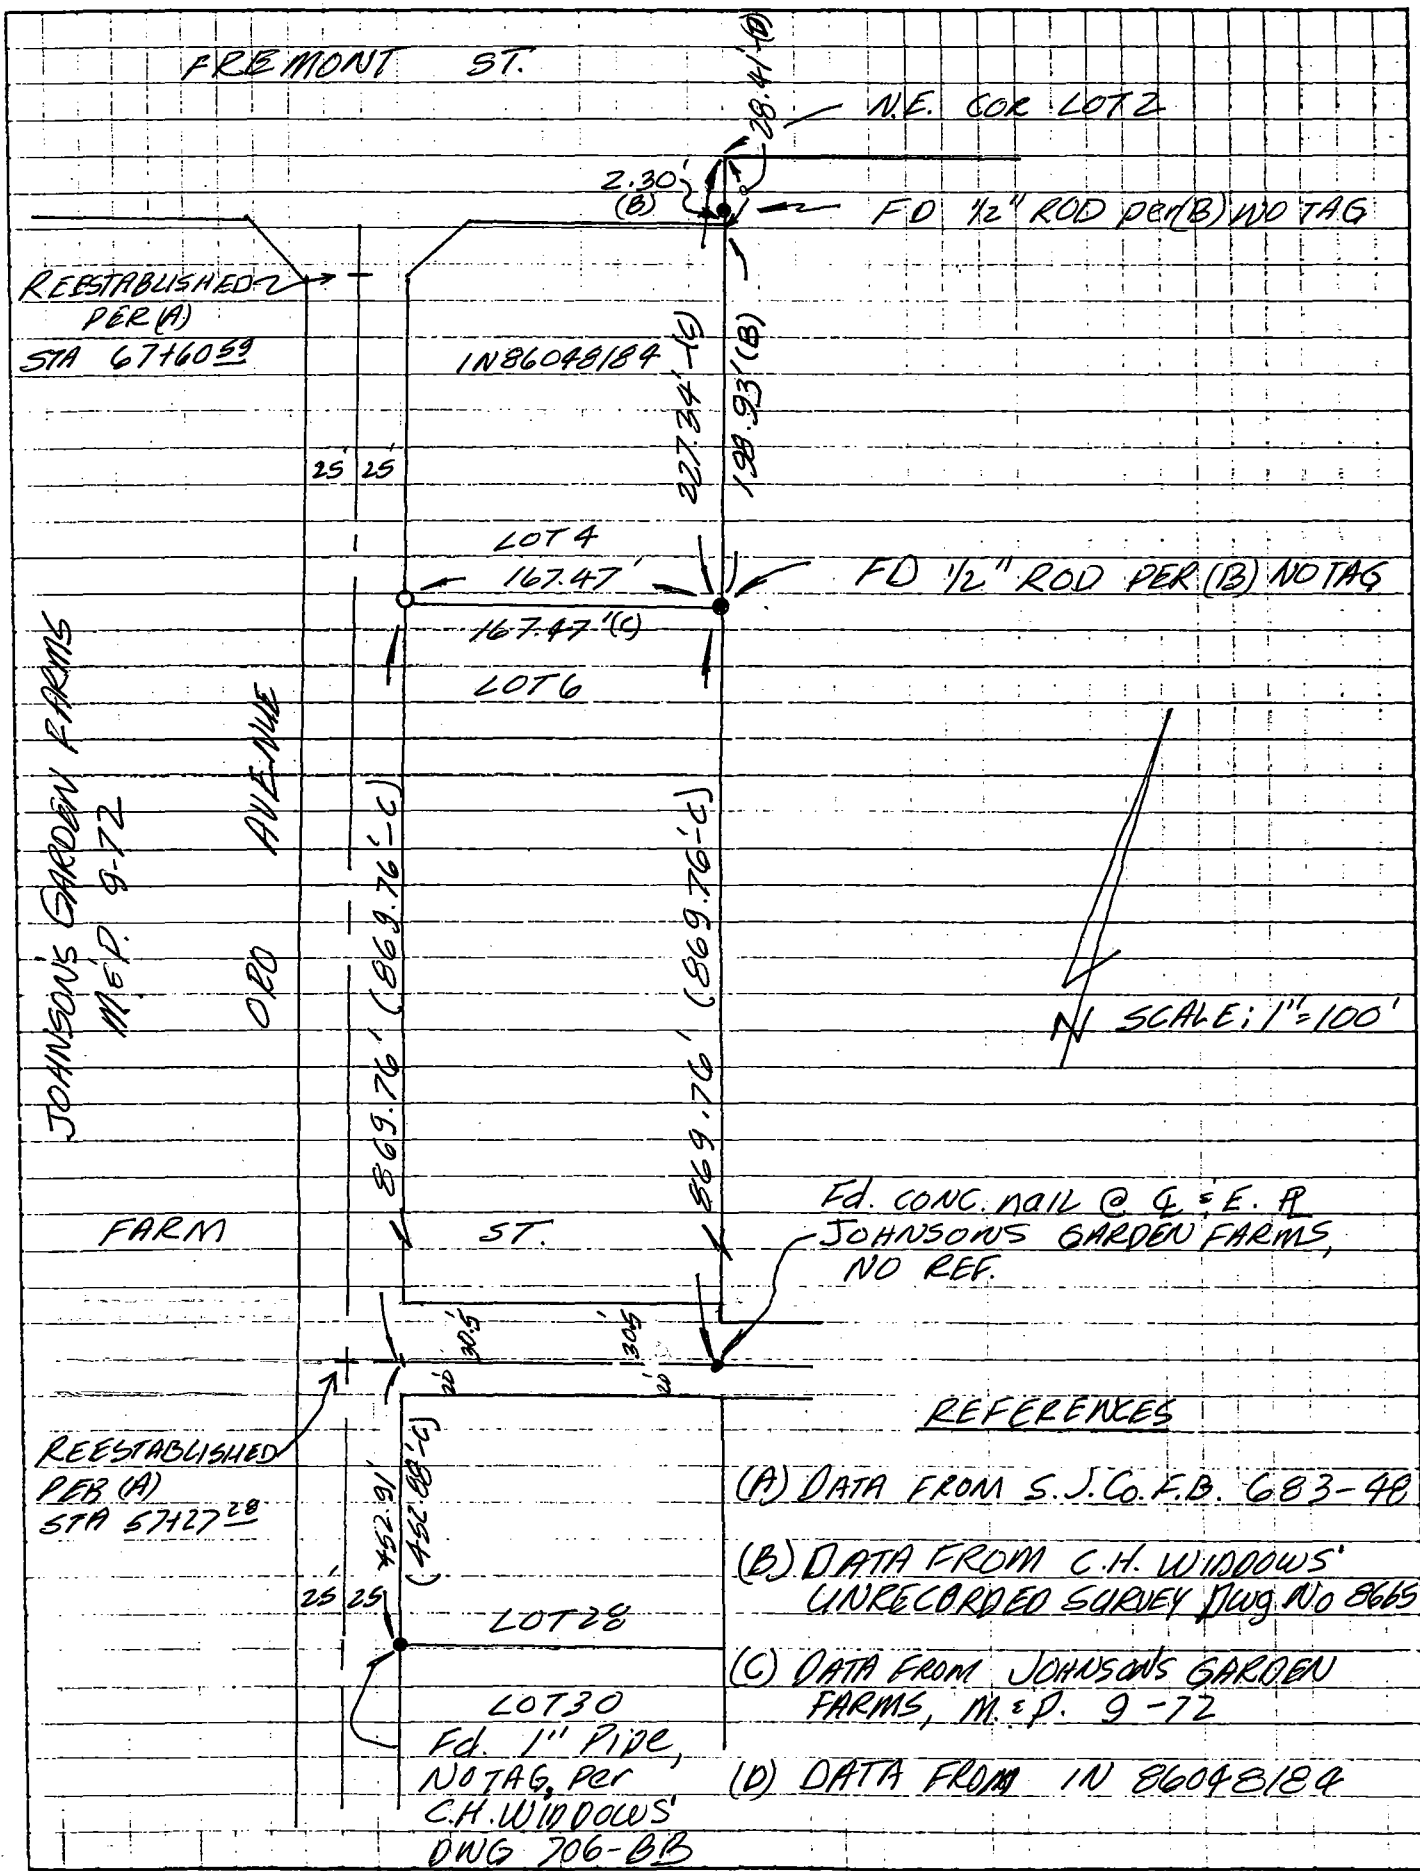 FREMONT ST.
28.41'(D)
N.E. COR LOT 2
2.30'
(B)
FD 1/2" ROD per(B) NO TAG
REESTABLISHED
PER (A)
STA 67+60 59
IN86048184
227.34'-(C)
198.93'(B)
25' 25'
LOT 4
167.47'
167.47'(C)
LOT 6
FD 1/2" ROD PER (B) NO TAG
JOHNSON'S GARDEN FARMS
M & P. 9-72
ORO AVENUE
869.76' (869.76'-C)
869.76' (869.76-C)
N SCALE: 1"=100'
FARM ST.
Fd. CONC. NAIL @ ℄ & E. ⅊
JOHNSONS GARDEN FARMS,
NO REF.
30.5'
30.5'
20'
20'
REESTABLISHED
PER (A)
STA 57+27 28
452.91'
(452.88'-C)
25' 25'
LOT 28
LOT 30
Fd. 1" Pipe,
NO TAG, Per
C.H. WIDDOWS'
DWG 706-BB
REFERENCES
(A) DATA FROM S.J.Co.F.B. 683-48
(B) DATA FROM C.H. WIDDOWS'
UNRECORDED SURVEY Dwg No 8665
(C) DATA FROM JOHNSON'S GARDEN
FARMS, M. & P. 9-72
(D) DATA FROM IN 86048184